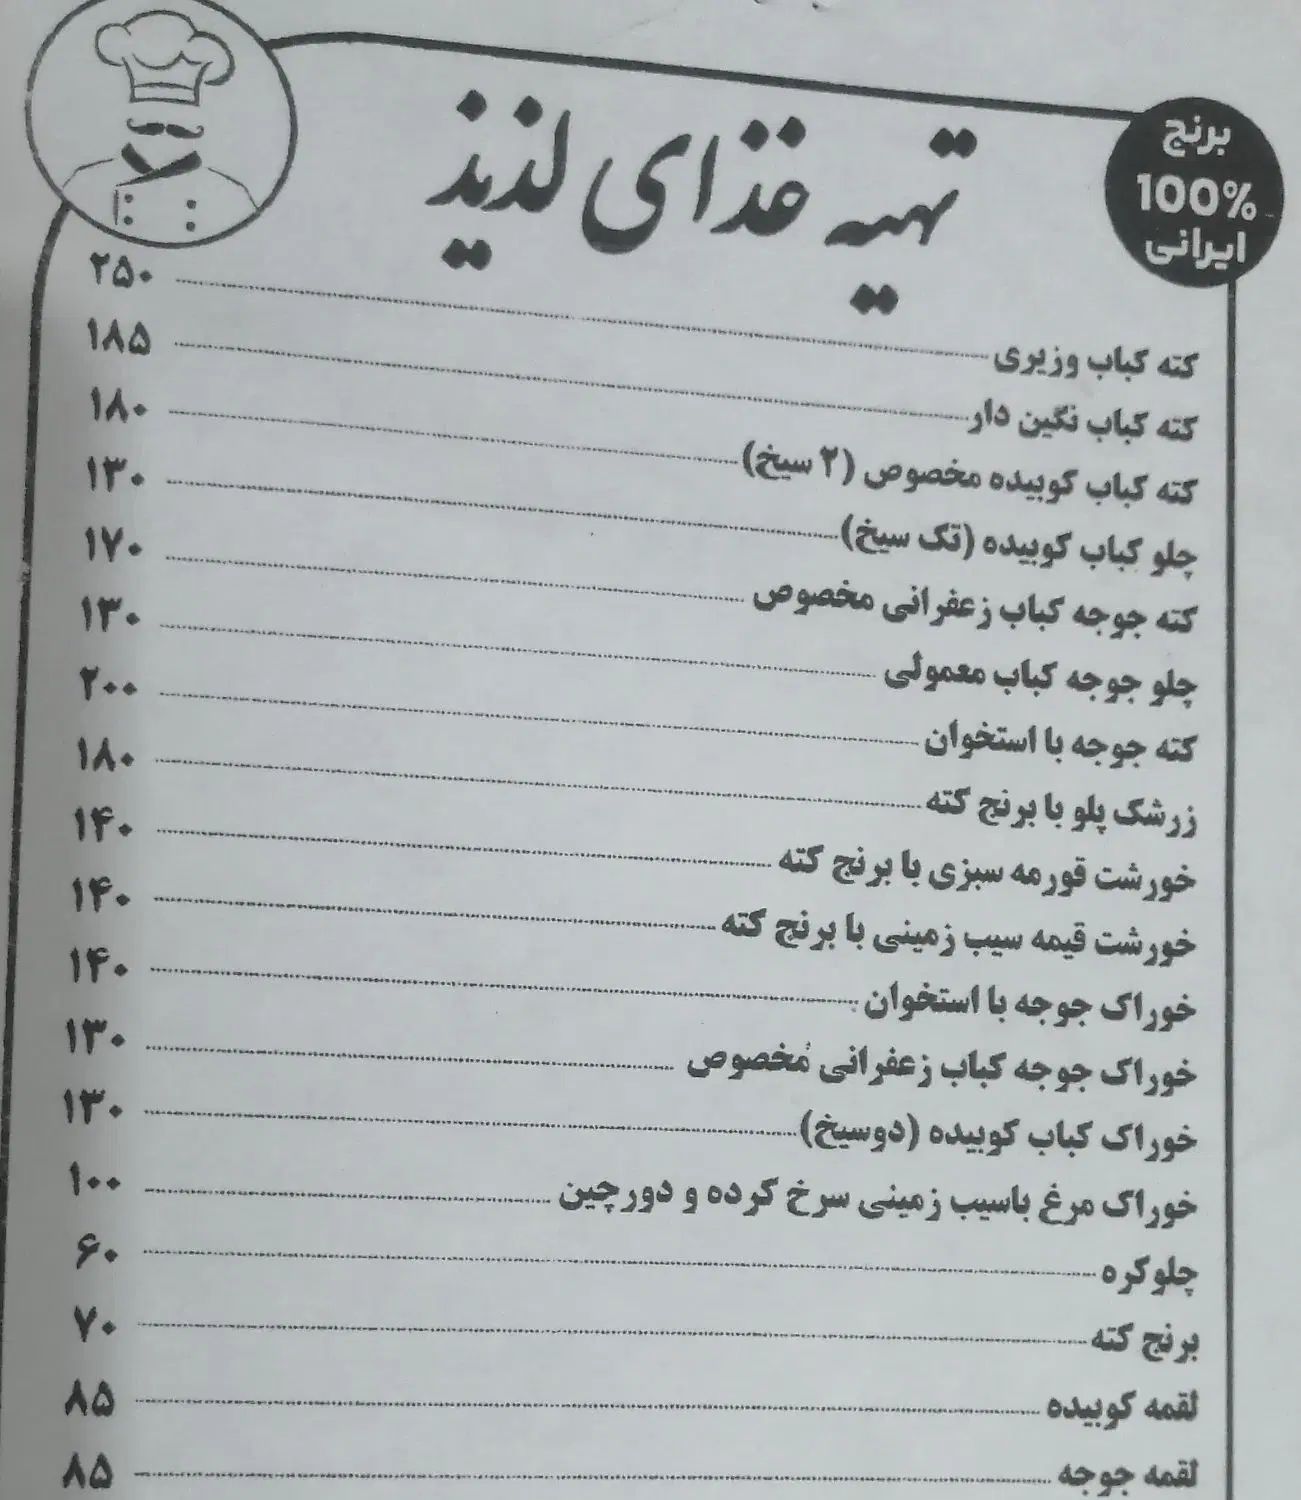 برنج
100%
ایرانی
تهیه غذای لذیذ
کته کباب وزیری ۲۵۰
کته کباب نگین دار ۱۸۵
کته کباب کوبیده مخصوص (۲ سیخ) ۱۸۰
چلو کباب کوبیده (تک سیخ) ۱۳۰
کته جوجه کباب زعفرانی مخصوص ۱۷۰
چلو جوجه کباب معمولی ۱۳۰
کته جوجه با استخوان ۲۰۰
زرشک پلو با برنج کته ۱۸۰
خورشت قورمه سبزی با برنج کته ۱۴۰
خورشت قیمه سیب زمینی با برنج کته ۱۴۰
خوراک جوجه با استخوان ۱۴۰
خوراک جوجه کباب زعفرانی مُخصوص ۱۳۰
خوراک کباب کوبیده (دوسیخ) ۱۳۰
خوراک مرغ باسیب زمینی سرخ کرده و دورچین ۱۰۰
چلوکره ۶۰
برنج کته ۷۰
لقمه کوبیده ۸۵
لقمه جوجه ۸۵